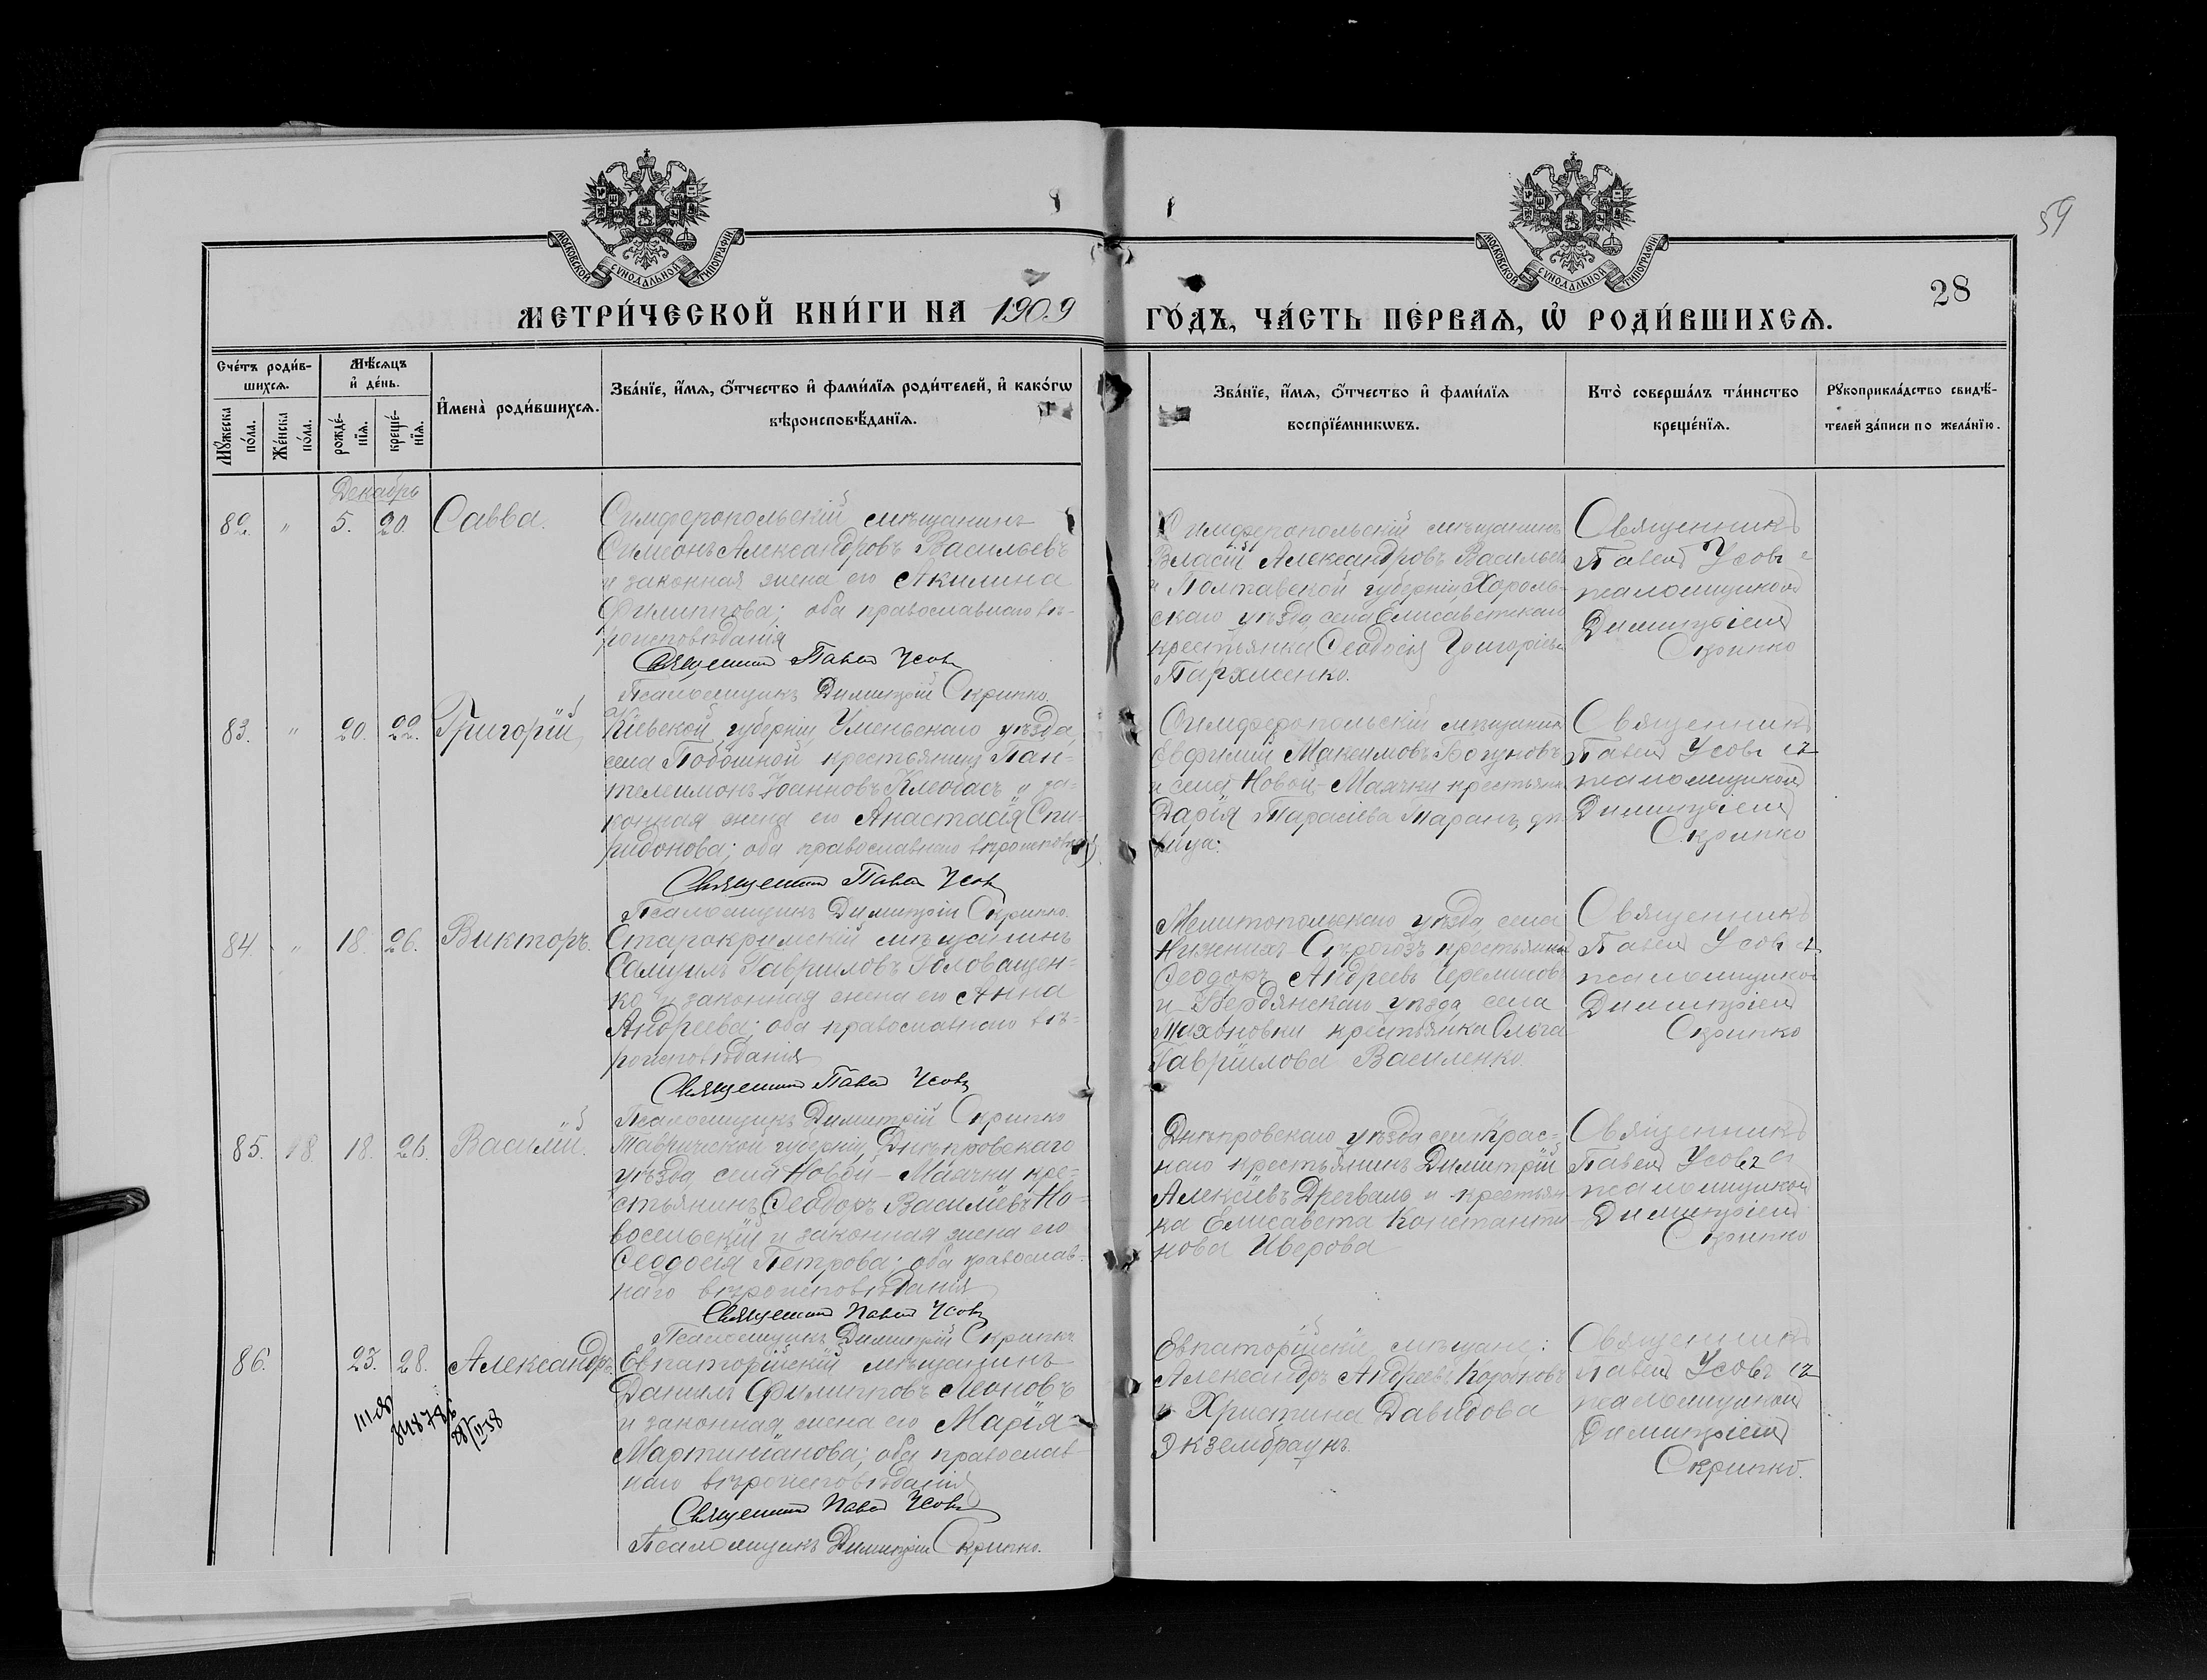 59
МОСКОВСКОЙ СѴНОДАЛЬНОЙ ТИПОГРАФІИ
МОСКОВСКОЙ СѴНОДАЛЬНОЙ ТИПОГРАФІИ
28
МЕТРИ́ЧЕСКОЙ КНИ́ГИ НА 1909 ГО́ДЪ, ЧА́СТЬ ПЕ́РВАѦ, Ѡ҆ РОДИ́ВШИХСѦ.
Сче́тъ роди́в-
шихсѧ.
Мꙋ́жеска по́ла.
Же́нска по́ла.
Мѣ́сѧцъ
и҆ де́нь.
рожде́-
нїѧ.
креще́-
нїѧ.
И҆мена̀ роди́вшихсѧ.
Зва́нїе, и҆́мѧ, ѻ҆́тчество и҆ фами́лїѧ роди́телей, и҆ како́гѡ
вѣроисповѣ́данїѧ.
Зва́нїе, и҆́мѧ, ѻ҆́тчество и҆ фами́лїѧ
воспрїе́мникѡвъ.
Кто̀ соверша́лъ та́инство
креще́нїѧ.
Рꙋкоприкла́дство свидѣ́-
телей за́писи по жела́нїю.
Декабрь
82. " 5. 20. Савва.
Симферопольскій мѣщанинъ
Симеонъ Александровъ Васильевъ
и законная жена его Акилина
Филиппова; оба православнаго вѣ-
роисповѣданія
Священникъ Павелъ Усовъ
Псаломщикъ Димитрій Скрипко.
Симферопольскій мѣщанинъ
Власій Александровъ Васильевъ
и Полтавской губерніи, Хороль-
скаго уѣзда села Елисаветскаго
крестьянка Ѳеодосія Григоріева
Пархоменко.
Священникъ
Павелъ Усовъ с
псаломщикомъ
Димитріемъ
Скрипко
83. " 20. 22. Григорій
Кіевской губерніи Уменьскаго уѣзда,
села Побошной крестьянинъ Пан-
телеимонъ Іоанновъ и за-
конная жена его Анастасія Спи-
ридонова; оба православнаго
Священникъ Павелъ Усовъ
Псаломщикъ Димитрій Скрипко.
Симферопольскій мѣщанинъ
Евфимій Максимовъ
и села Новой-Маячки крестьян
Дарія Тарасіева Таранъ, дѣ-
вица.
Священникъ
Павелъ Усовъ съ
псаломщикомъ
Димитріемъ
Скрипко
84. " 18. 26. Викторъ.
Старокримскій мѣщанинъ
Самуилъ Гавриловъ Головащен-
ко и законная жена его Анна
Андреева; оба православнаго вѣ-
роисповѣданія
Священникъ Павелъ Усовъ
Псаломщикъ Димитрій Скрипко
Мелитопольскаго уѣзда, села
Нижнихъ-Сѣрогозъ крестьянинъ
Ѳеодоръ Андреевъ
и Бердянскаго уѣзда, села
крестьянка Ольга
Гавріилова Василенко.
Священникъ
Павелъ Усовъ съ
псаломщикомъ
Димитріемъ
Скрипко
85. 18. 26. Василій.
Таврической губерніи, Днѣпровскаго
уѣзда, села Новой-Маячки кре-
стьянинъ Ѳеодоръ Василіевъ Но-
восельскій и законная жена его
Ѳеодосія Петрова; оба православ-
наго вѣроисповѣданія
Священникъ Павелъ Усовъ
Псаломщикъ Димитрій Скрипко
Днѣпровскаго уѣзда села Крас-
наго крестьянинъ Димитрій
Алексіевъ Дрегваль и крестьян-
ка Елисавета Константи-
нова Иверова
Священникъ
Павелъ Усовъ съ
псаломщикомъ
Димитріемъ
Скрипко
86. 23. 28. Александръ.
Евпаторійскій мѣщанинъ
Даніилъ Филипповъ Леоновъ
и законная жена его Марія
Мартиніанова; оба православ-
наго вѣроисповѣданія
Священникъ Павелъ Усовъ
Псаломщикъ Димитрій Скрипко.
Евпаторійскіе мѣщане:
Александръ Андреевъ
и Христина Давидова
Экзембраунъ.
Священникъ
Павелъ Усовъ съ
псаломщикомъ
Димитріемъ
Скрипко.